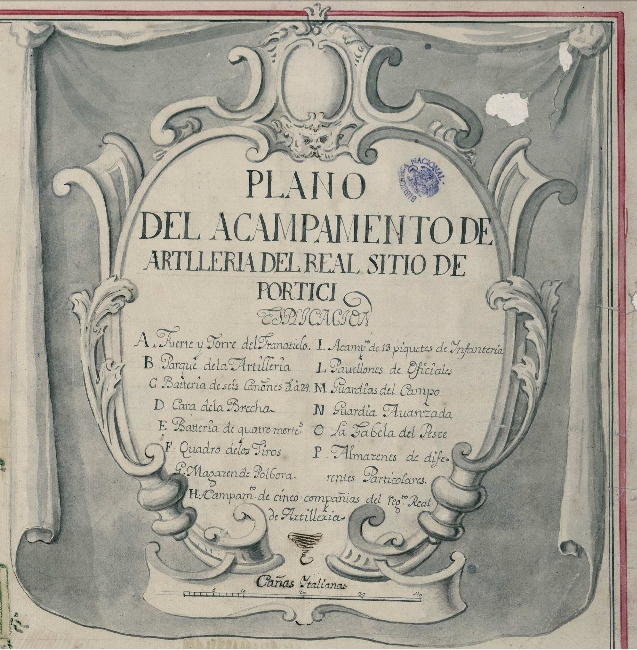 PLANO
BIBLIOTECA NACIONAL
DEL ACAMPAMENTO DE
ARTLLERIA DEL REAL SITIO DE
PORTICI
EXPLICACION
A. Fuerte y Torre del Granatielo.
B Parque dela Artilleria
C Bateria de seis Cañones
D Cara dela Brecha
E Bateria de quatro morter.s
F Quadro delos Tiros
G. Magazen de Polbora.
H. Campam.to de cinco compañias del Reg.to Real
de Artilleria
I. Acamp.to de 13 piquetes de Infanteria
L Pavellones de Oficiales
M Guardias del Campo
N Guardia Auanzada
O La Gabela del Pesce
P. Almazenes de dife-
rentes Particolares.
Cañas Italianas